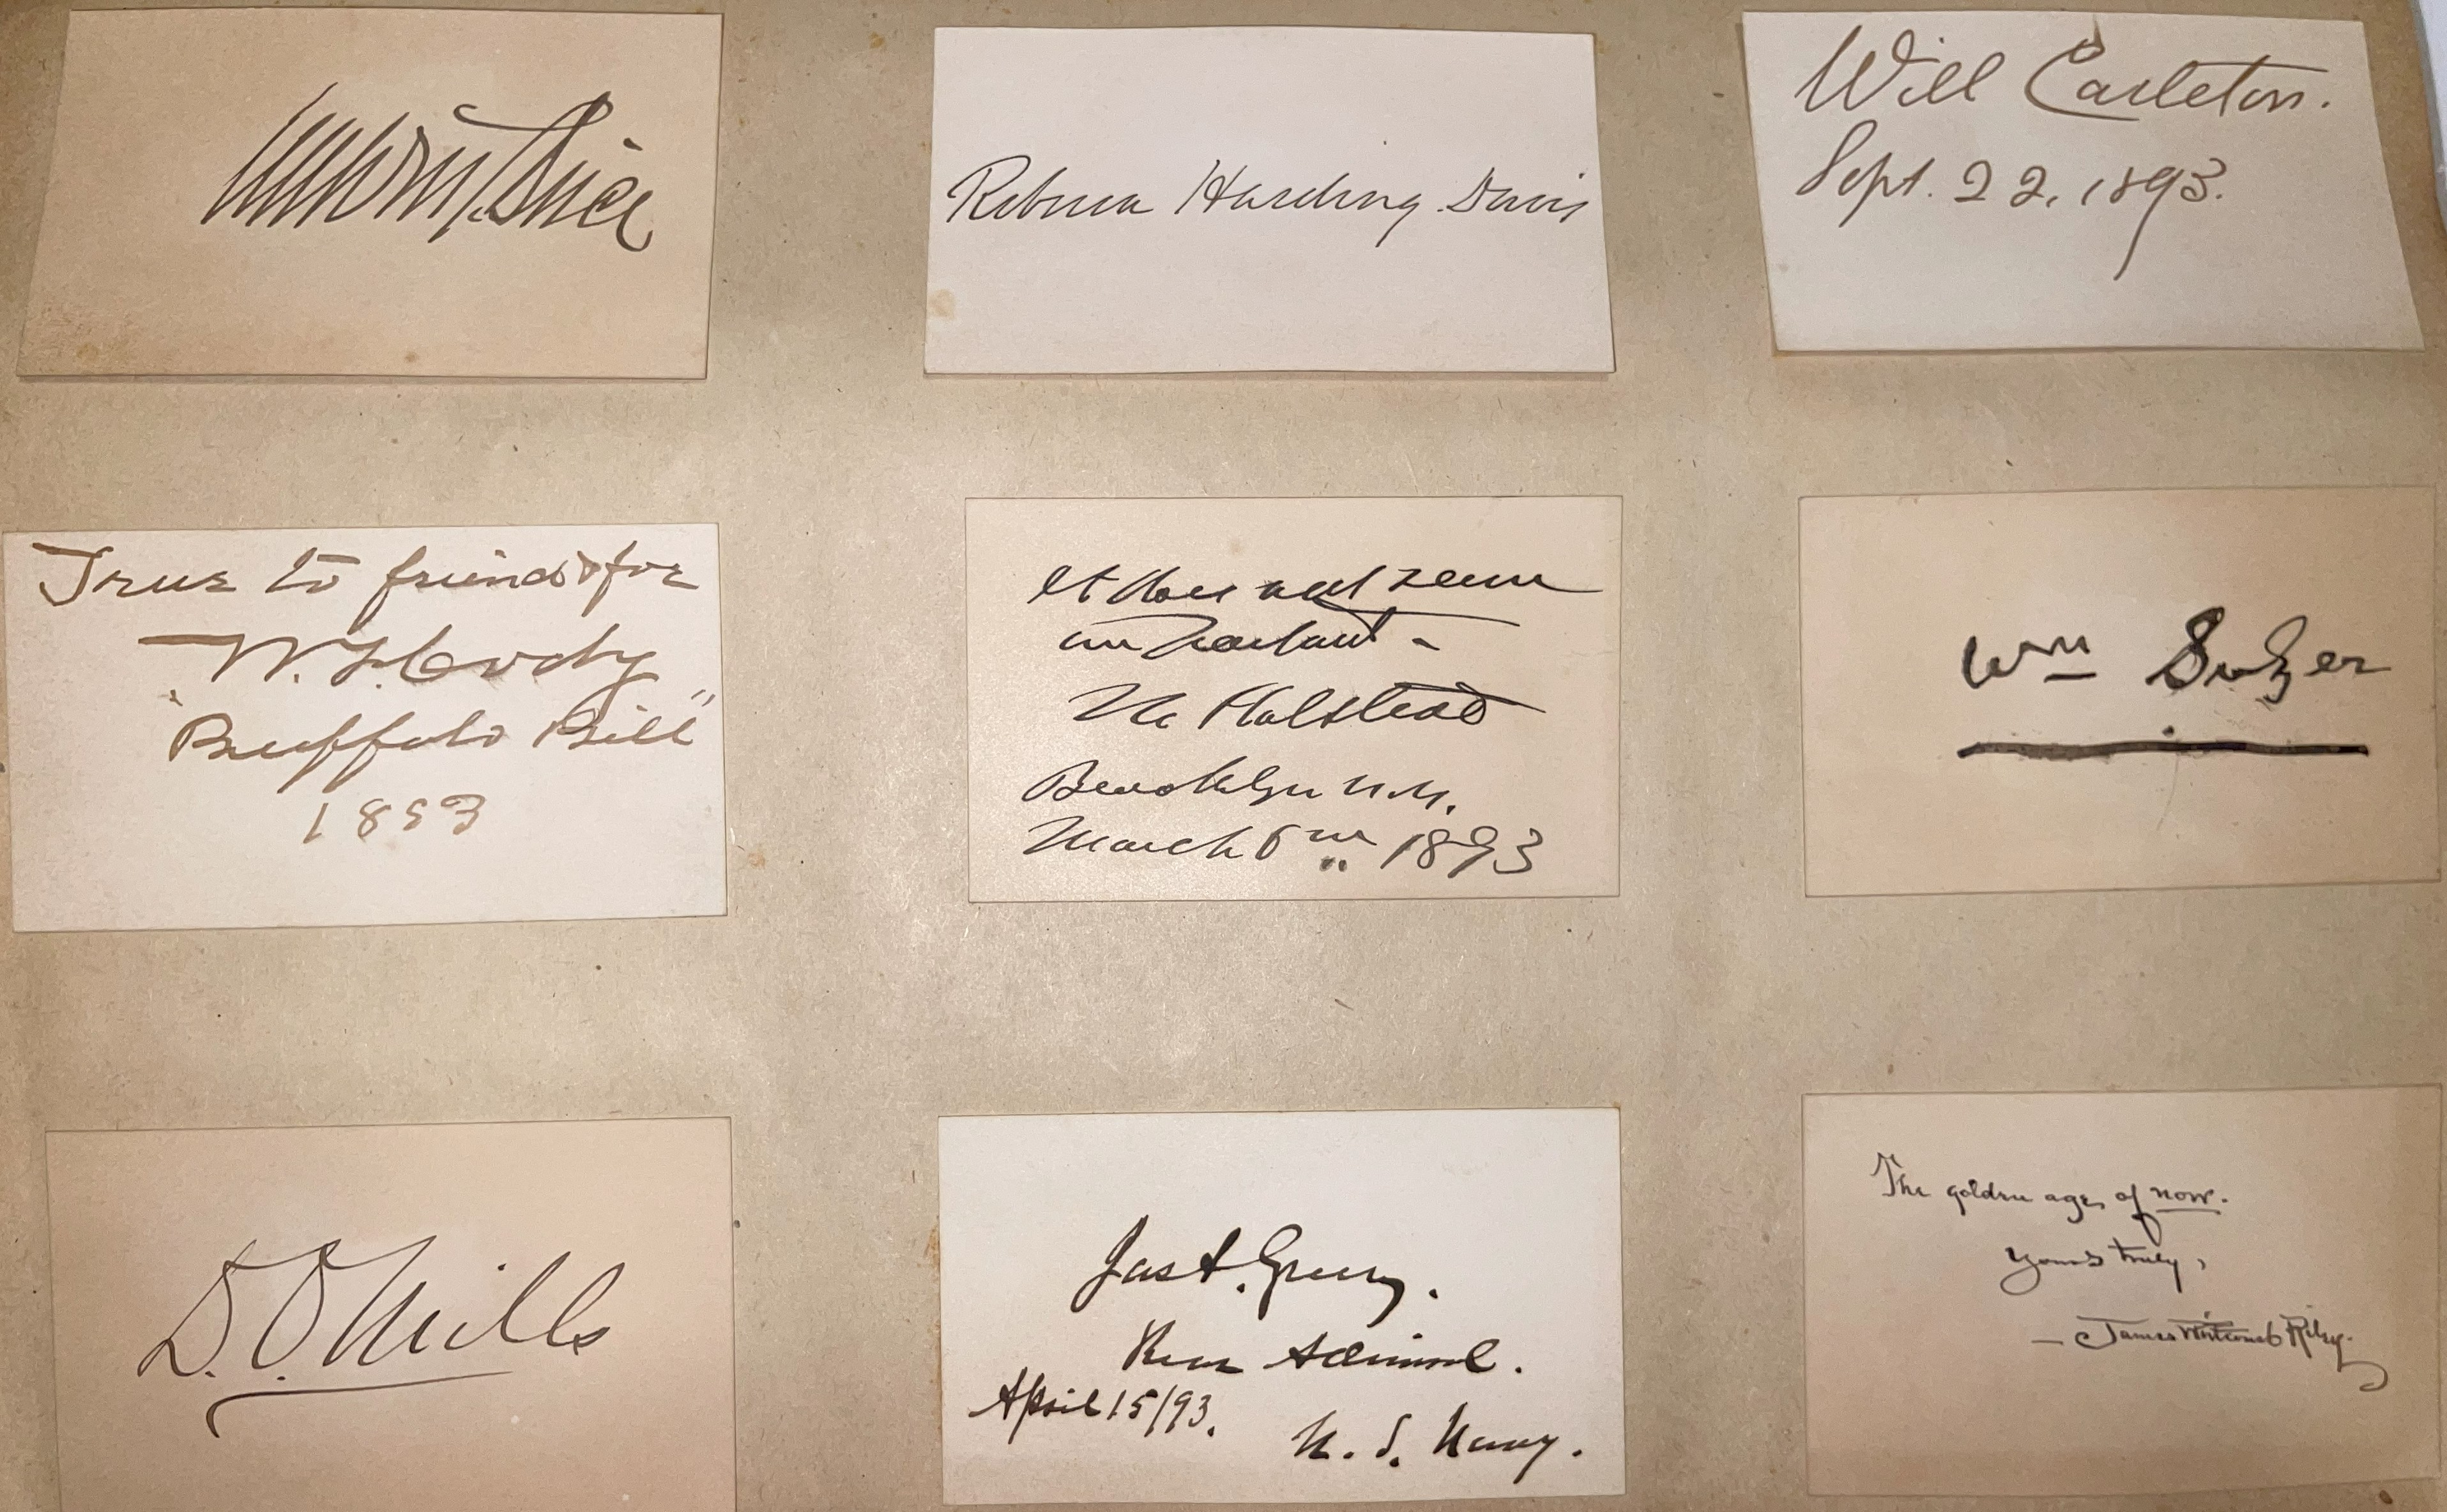 Rebecca Harding Davis
Will Carleton.
Sept. 22, 1893.
True to friend & foe
W. F. Cody
"Buffalo Bill"
1893
It does not seem
important -
M Halstead
Brooklyn N.Y.
March 6th 1893
Wm Sulzer
D. O. Mills
Jas A. Greer.
Rear Admiral.
April 15/93.
U. S. Navy.
The golden age, of now.
Yours truly,
— James Whitcomb Riley.